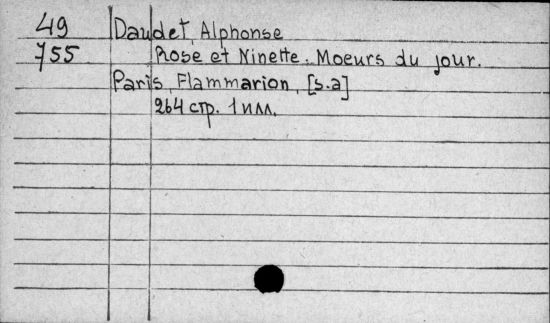 49 Daudet, Alphonse
755 Rose et Ninette. Moeurs du jour.
Paris, Flammarion, [s.a]
264 стр. 1 илл.